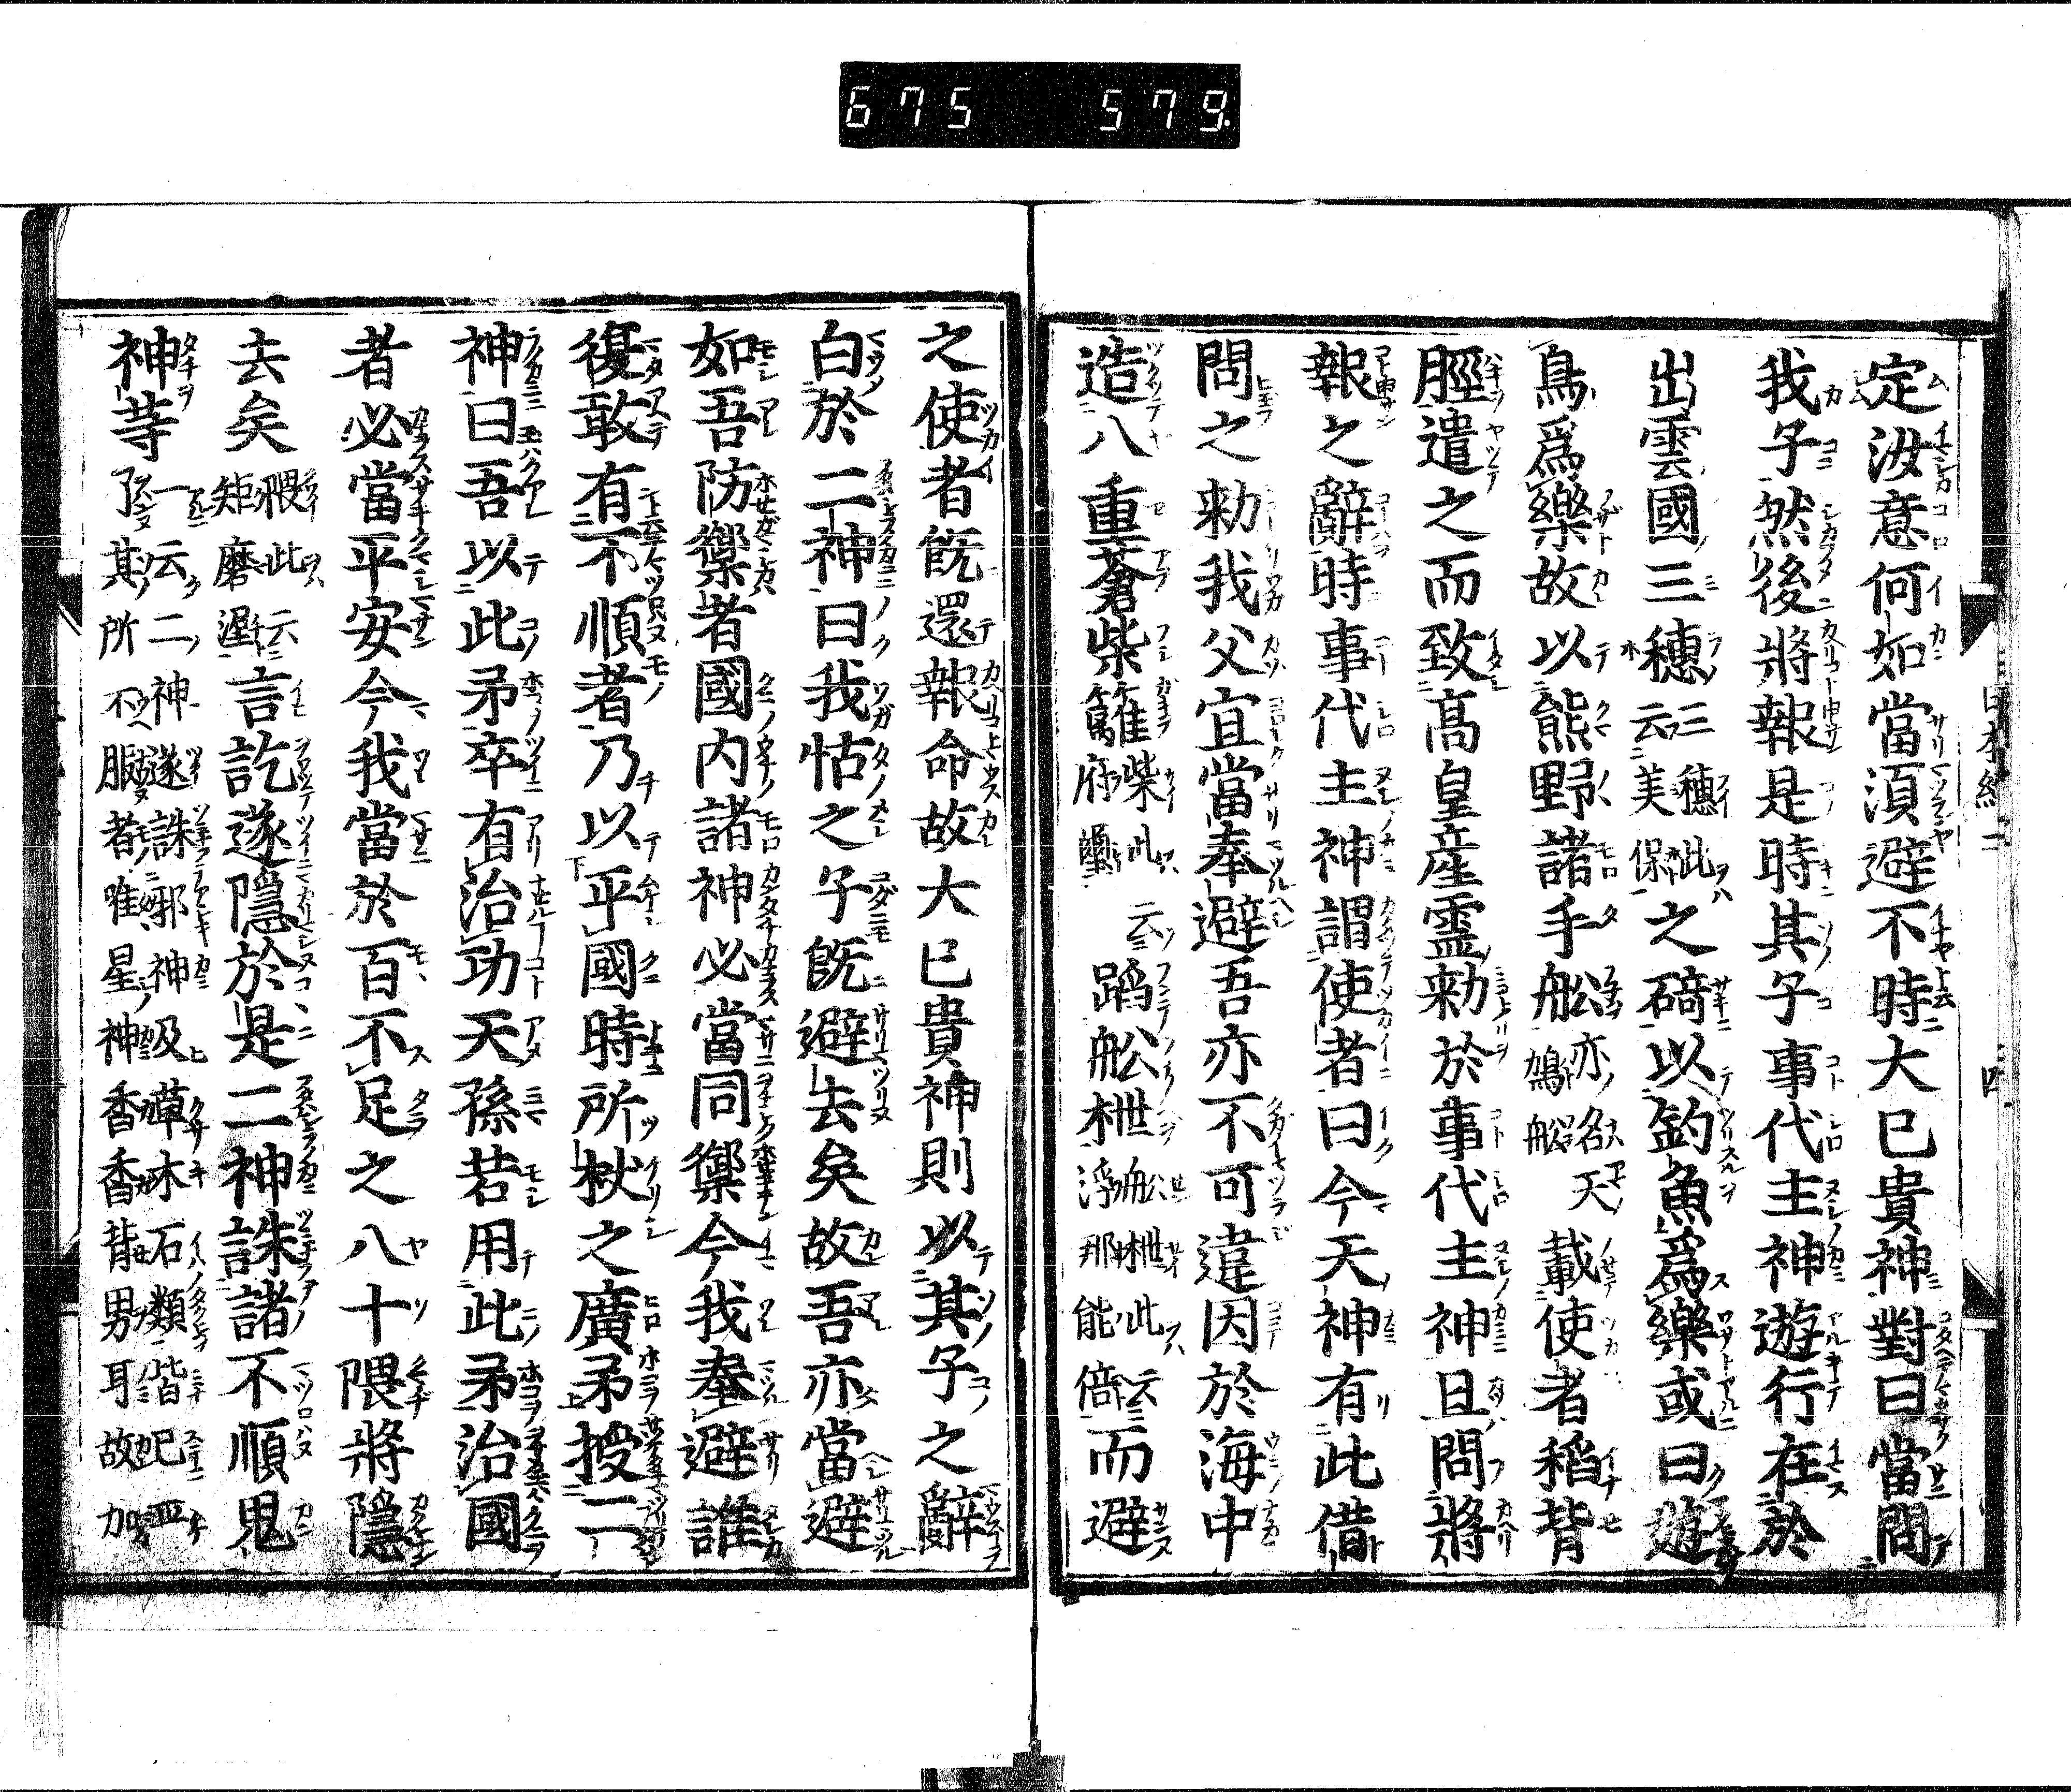 675 579.
日本紀二 四
定汝意何如當湏避不時大己貴神對曰當問
我子然後將報是時其子事代主神遊行在於
出雲國三穗三穗此云美保之碕以釣魚爲樂或曰遊
鳥爲樂故以熊野諸手舩亦名天鴿舩載使者稻背
脛遣之而致髙皇産靈勅於事代主神且問將
報之辭時事代主神謂使者曰今天神有此借
問之勅我父宜當奉避吾亦不可違因於海中
造八重蒼柴籬柴此云府璽蹈舩枻舩枻此云浮那能倍而避
之使者既還報命故大己貴神則以其子之辭
白於二神曰我怙之子既避去矣故吾亦當避
如吾防禦者國内諸神必當同禦今我奉避誰
復敢有不順者乃以平國時所杖之廣矛授二
神曰吾以此矛卒有治功天孫若用此矛治國
者必當平安今我當於百不足之八十隈將隱
去矣隈此云矩磨泥言訖遂隱於是二神誅諸不順鬼
神等一云二神遂誅邪神及草木石類皆已平了其所不服者唯星神香香背男耳故加